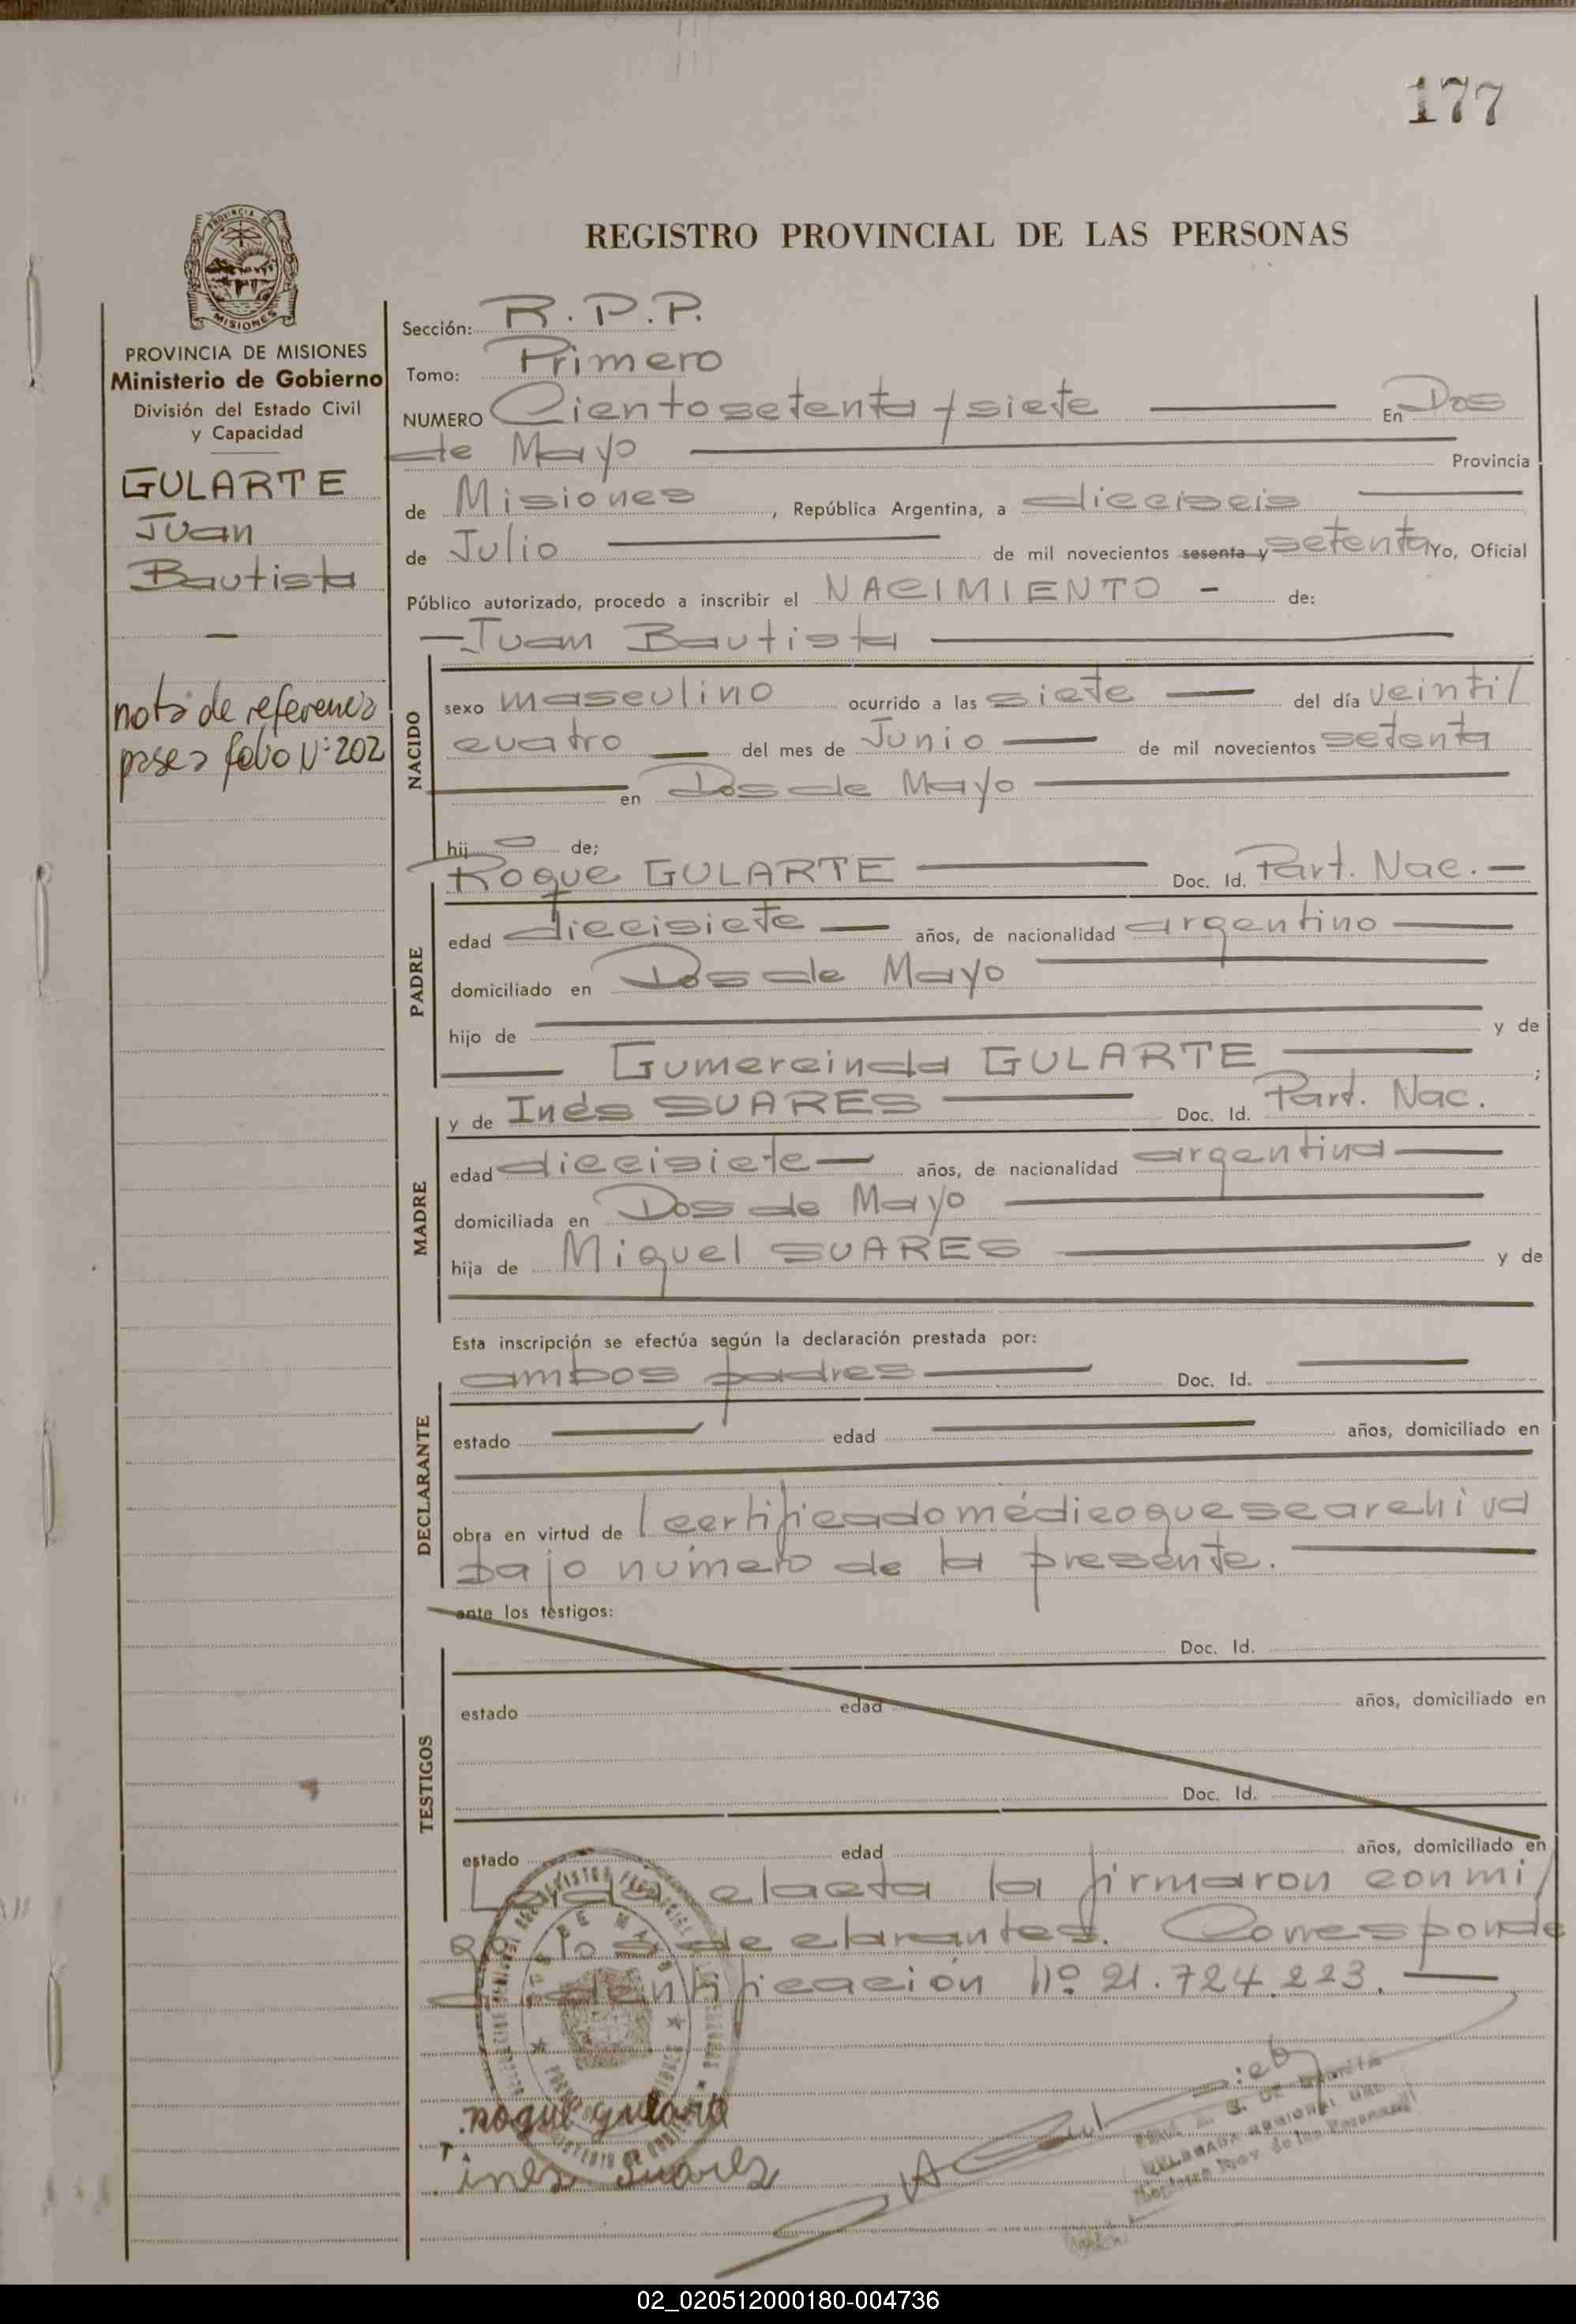 177
PROVINCIA DE
MISIONES
REGISTRO PROVINCIAL DE LAS PERSONAS
PROVINCIA DE MISIONES
Ministerio de Gobierno
División del Estado Civil
y Capacidad
GULARTE
Juan
Bautista
nota de referencia
pase a folio Nº 202
Sección: R.P.P.
Tomo: Primero
NUMERO Ciento setenta y siete En Dos
de Mayo Provincia
de Misiones, República Argentina, a dieciseis
de Julio de mil novecientos sesenta y setenta Yo, Oficial
Público autorizado, procedo a inscribir el NACIMIENTO - de:
Juan Bautista
NACIDO
sexo masculino ocurrido a las siete del día veinti/
cuatro del mes de Junio de mil novecientos setenta
en Dos de Mayo
hij o de;
PADRE
Roque GULARTE Doc. Id. Part. Nac.
edad diecisiete años, de nacionalidad argentino
domiciliado en Dos de Mayo
hijo de y de
Gumercinda GULARTE ;
MADRE
y de Inés SUARES Doc. Id. Part. Nac.
edad diecisiete años, de nacionalidad argentina
domiciliada en Dos de Mayo
hija de Miguel SUARES y de
DECLARANTE
Esta inscripción se efectúa según la declaración prestada por:
ambos padres Doc. Id.
estado edad años, domiciliado en
obra en virtud de l certificado médico que se archiva
bajo número de la presente.
ante los testigos:
TESTIGOS
Doc. Id.
estado edad años, domiciliado en
Doc. Id.
estado edad años, domiciliado en
Leida el acta la firmaron conmi/
go los declarantes. Corresponde
a identificación Nº 21.724.223.
roque gularte
ines Suares
02_020512000180-004736